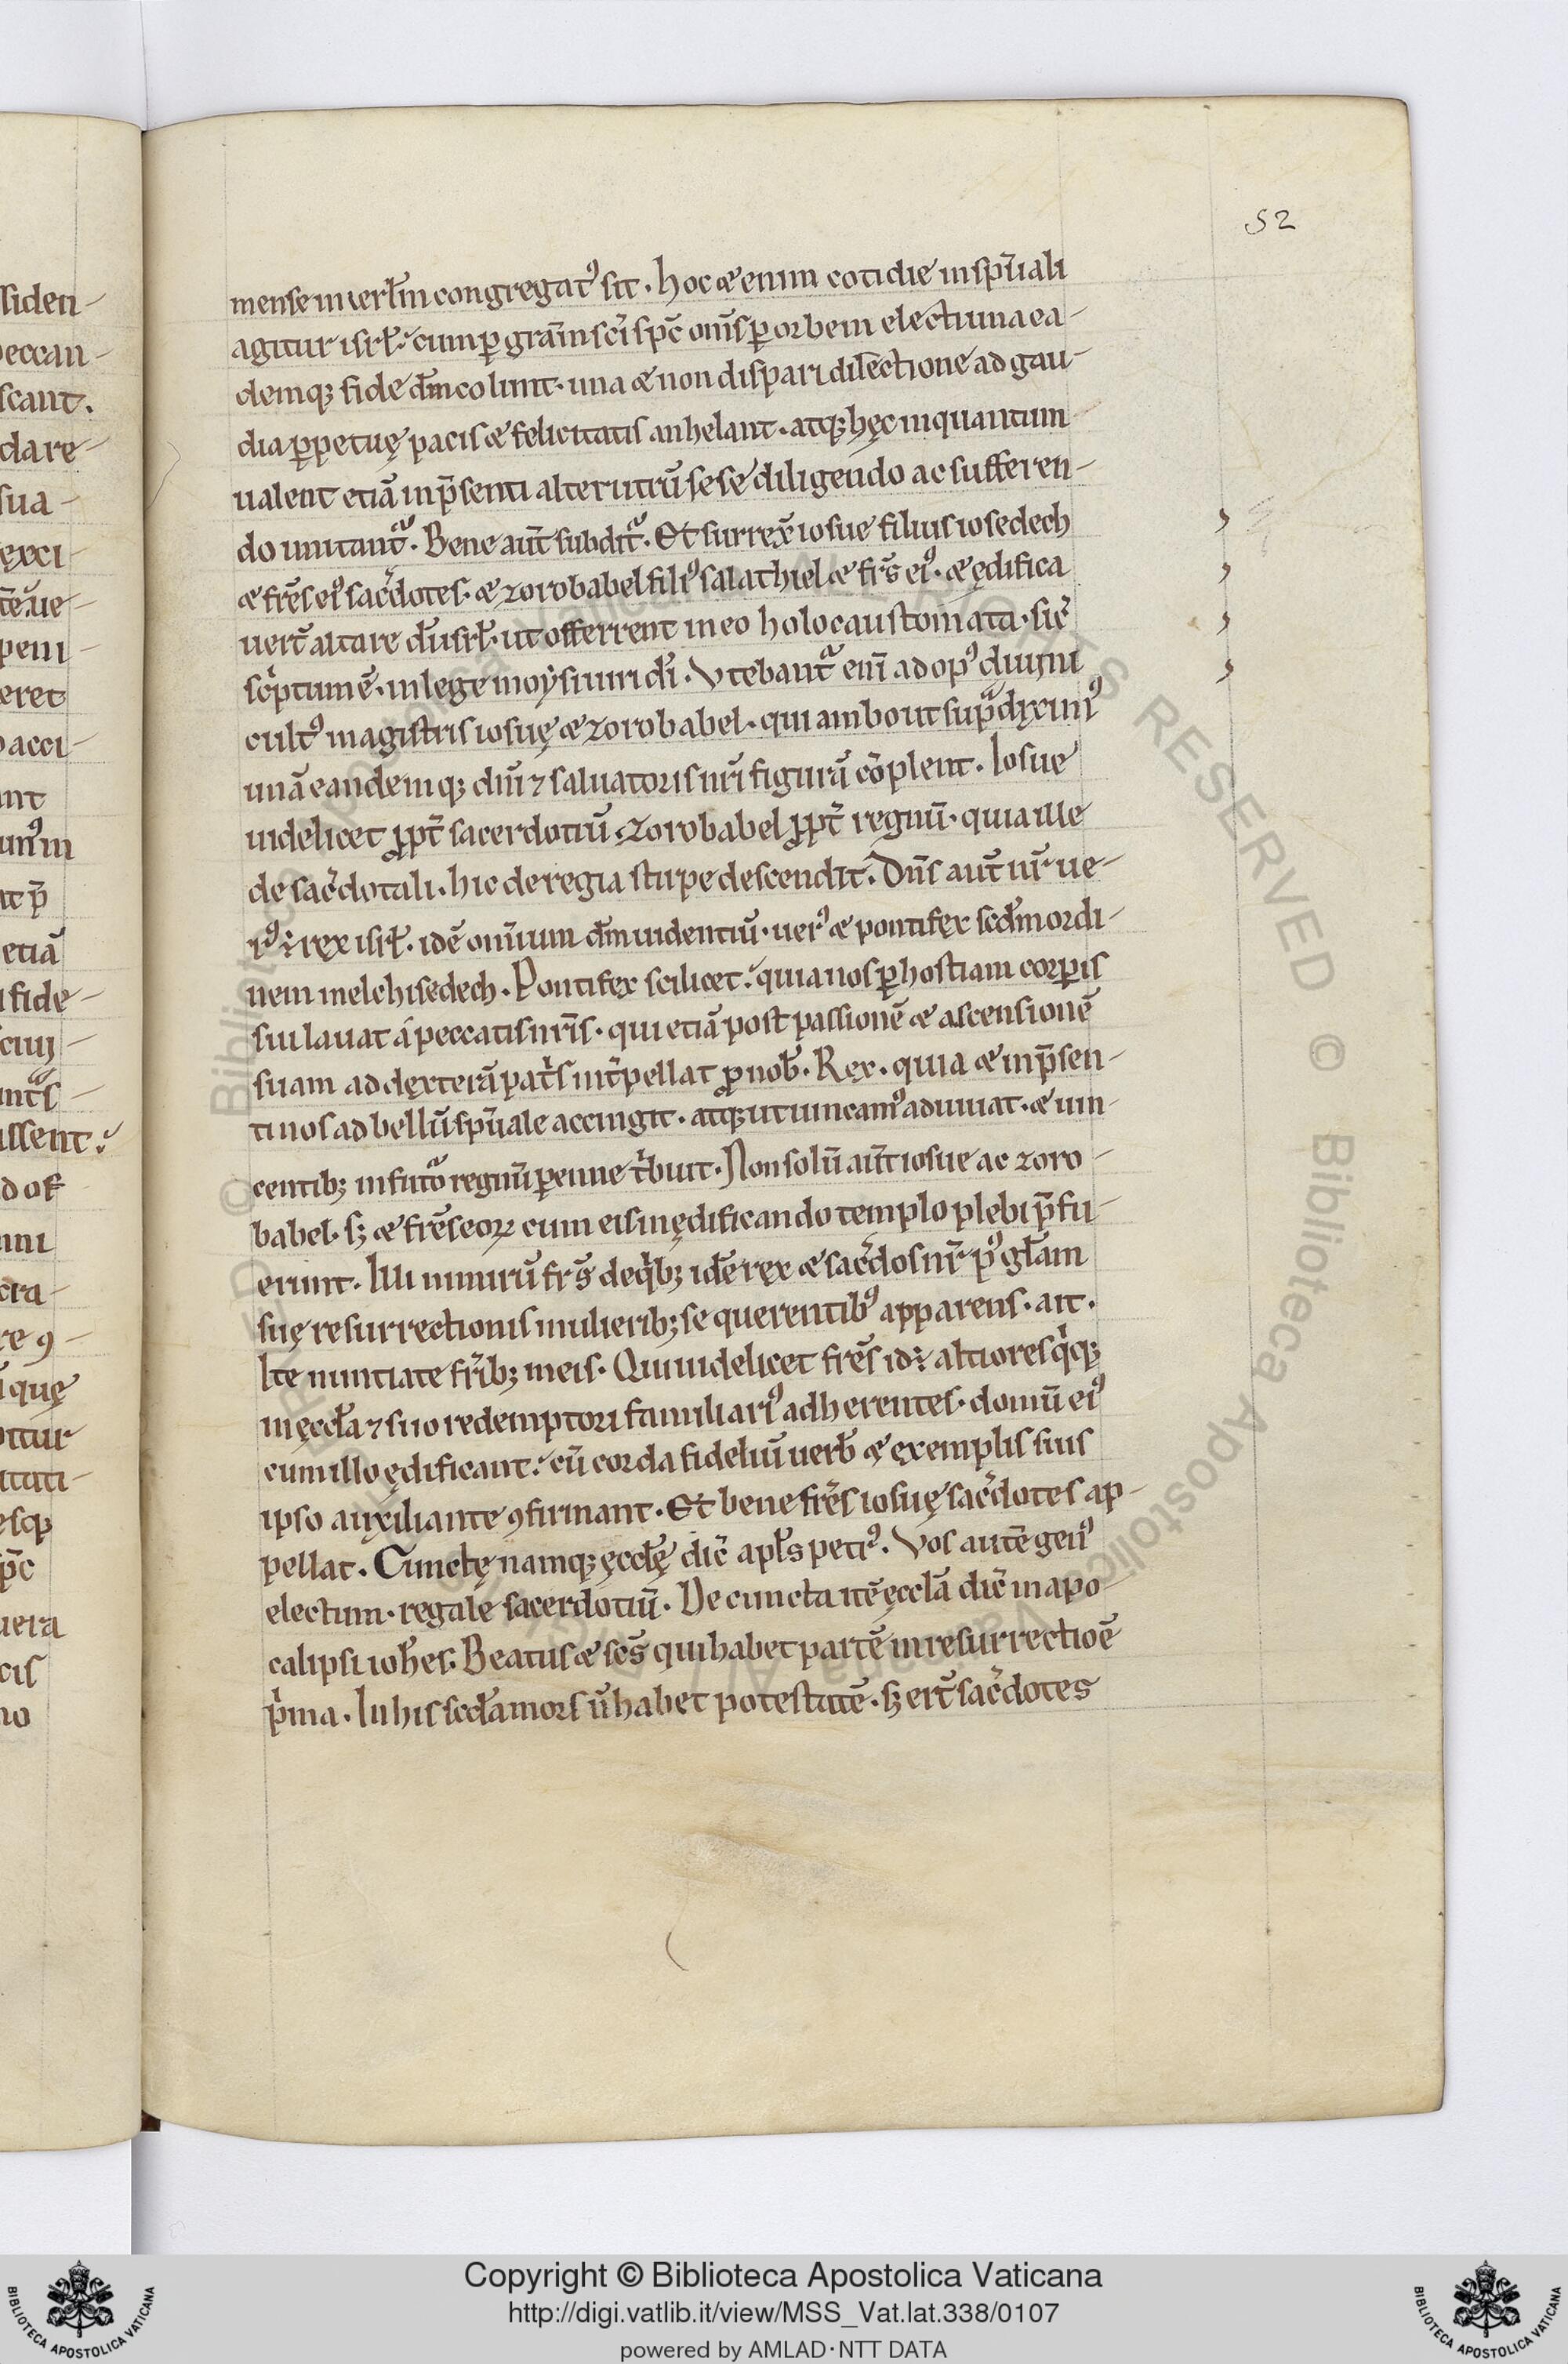 52
mense in ierłm congregatꝰ sit. hoc & enim cotidie in spũali
agitur isrł. cum ꝑ grãm sci sp̃c om̃s ꝑ orbem electi una ea-
demq; fide dm̃ colunt. una & non dispari dilectione ad gau-
dia ꝑpetuę pacis & felicitatis anhelant. atq; hęc inquantum
ualent etiã in p̃senti alterutrũ sese diligendo ac sufferen-
do imitant᷑. Bene aut̃ subdit᷑. Et surrex̃ iosue filius iosedech
& frẽs eiꝰ sac̃dotes. & zorobabel filiꝰ salathiel & frs̃ eiꝰ. & ędifica
uert̃ altare dĩ isrł. ut offerrent in eo holocaustomata. sic̃
scⁱptum ẽ. in lege moẏsi uiri di. Vtebant᷑ eni ad opꝰ diuini
cultꝰ magistris iosuę & zorobabel. qui ambo ut supᷓ diximꝰ
unã eandemq; dni ⁊ saluatoris nr̃i figurã cõplent. Iosue
uidelicet ꝓpt̃ sacerdotiũ. zorobabel ꝓpt̃ regnũ. quia ille
de sac̃dotali. hic de regia stirpe descendit. Dñs aut̃ nr̃ ue-
rꝰ ÷ rex isrł. idẽ omĩum dm̃ uidentiũ. uerꝰ & pontifex scdm̃ ordi-
nem melchisedech. Pontifex scilicet. quia nos ꝑ hostiam corꝑis
sui lauat á peccatis nr̃is. qui etiã post passionẽ & ascensionẽ
suam ad dexterã pat̃s int̃pellat ꝓ nob̃. Rex. quia & in p̃sen-
ti nos ad bellũ spũale accingit. atq; ut uincamꝰ adiuuat. & uin-
centib; in fut᷑o regnũ ꝑenne tⁱbuit. Non solũ aut̃ iosue ac zoro-
babel. sʒ & frẽs eoꝝ cum eis in ędificando templo plebi p̃fu-
erunt. Illi nimirũ frs̃ de qⁱb; idẽ rex & sac̃dos nr̃ pꝰ głam
suę resurrectionis mulierib; se querentibꝰ apparens. ait.
Ite nuntiate fr̃ib; meis. Qui uidelicet frẽs id÷ altiores qⁱq;
in ęccła ⁊ suo redemptori familiariꝰ adherentes. domũ eiꝰ
cum illo ędificant. cũ corda fideliũ uerb̃ & exemplis suis
ipso auxiliante ꝯfirmant. Et bene frẽs iosuę sac̃dotes ap-
pellat. Cunctę namq; ęccłę dic̃ apłs petrꝰ. Vos autẽ genꝰ
electum. regale sacerdotiũ. De cuncta itẽ ęccła dic̃ in apo-
calipsi ioħes. Beatus & scs̃ qui habet partẽ in resurrectioẽ
pⁱma. In his scda mors ñ habet potestatẽ. sʒ ert̃ sac̃dotes
Copyright © Biblioteca Apostolica Vaticana
http://digi.vatlib.it/view/MSS_Vat.lat.338/0107
powered by AMLAD·NTT DATA